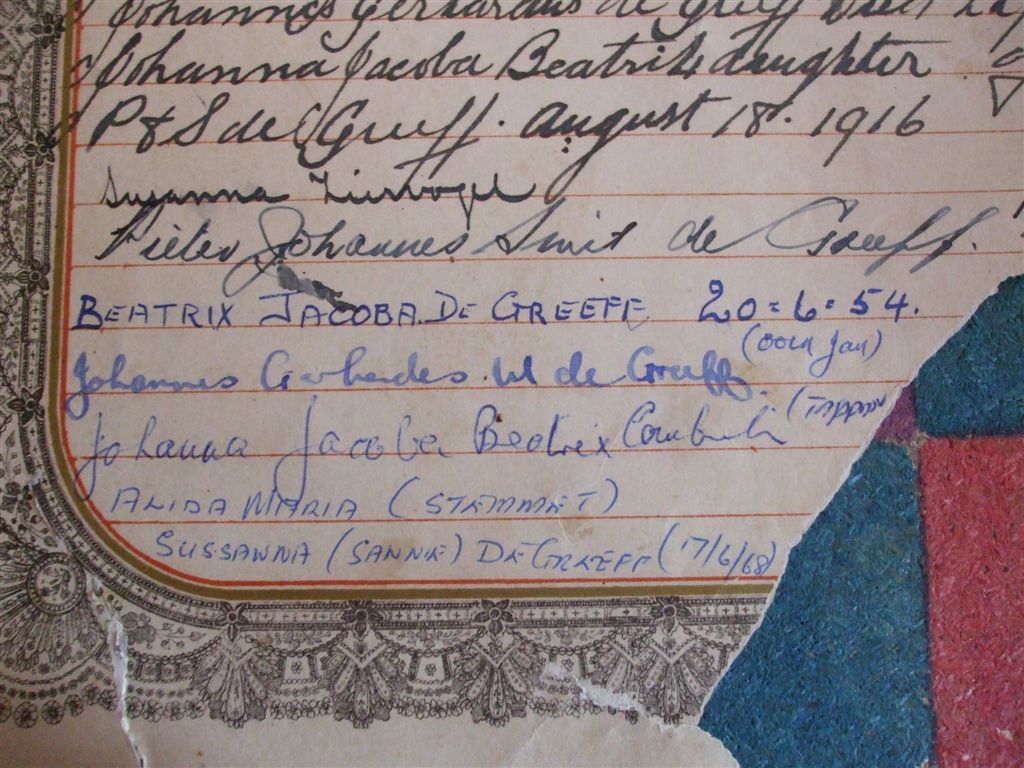 Johannes Gerhardus de Greeff Died
Johanna Jacoba Beatrix daughter
P & S de Greeff. August 18. 1916
Susanna Ziervogel
Pieter Johannes Smit de Greeff.
BEATRIX JACOBA DE GREEFF 20=6=54.
(Oom Jan)
Johannes Gerhardes. W de Greeff.
Johanna Jacoba Beatrix
ALIDA MARIA (STEMMET)
SUSSANNA (SANNIE) DE GREEFF (17/6/68)